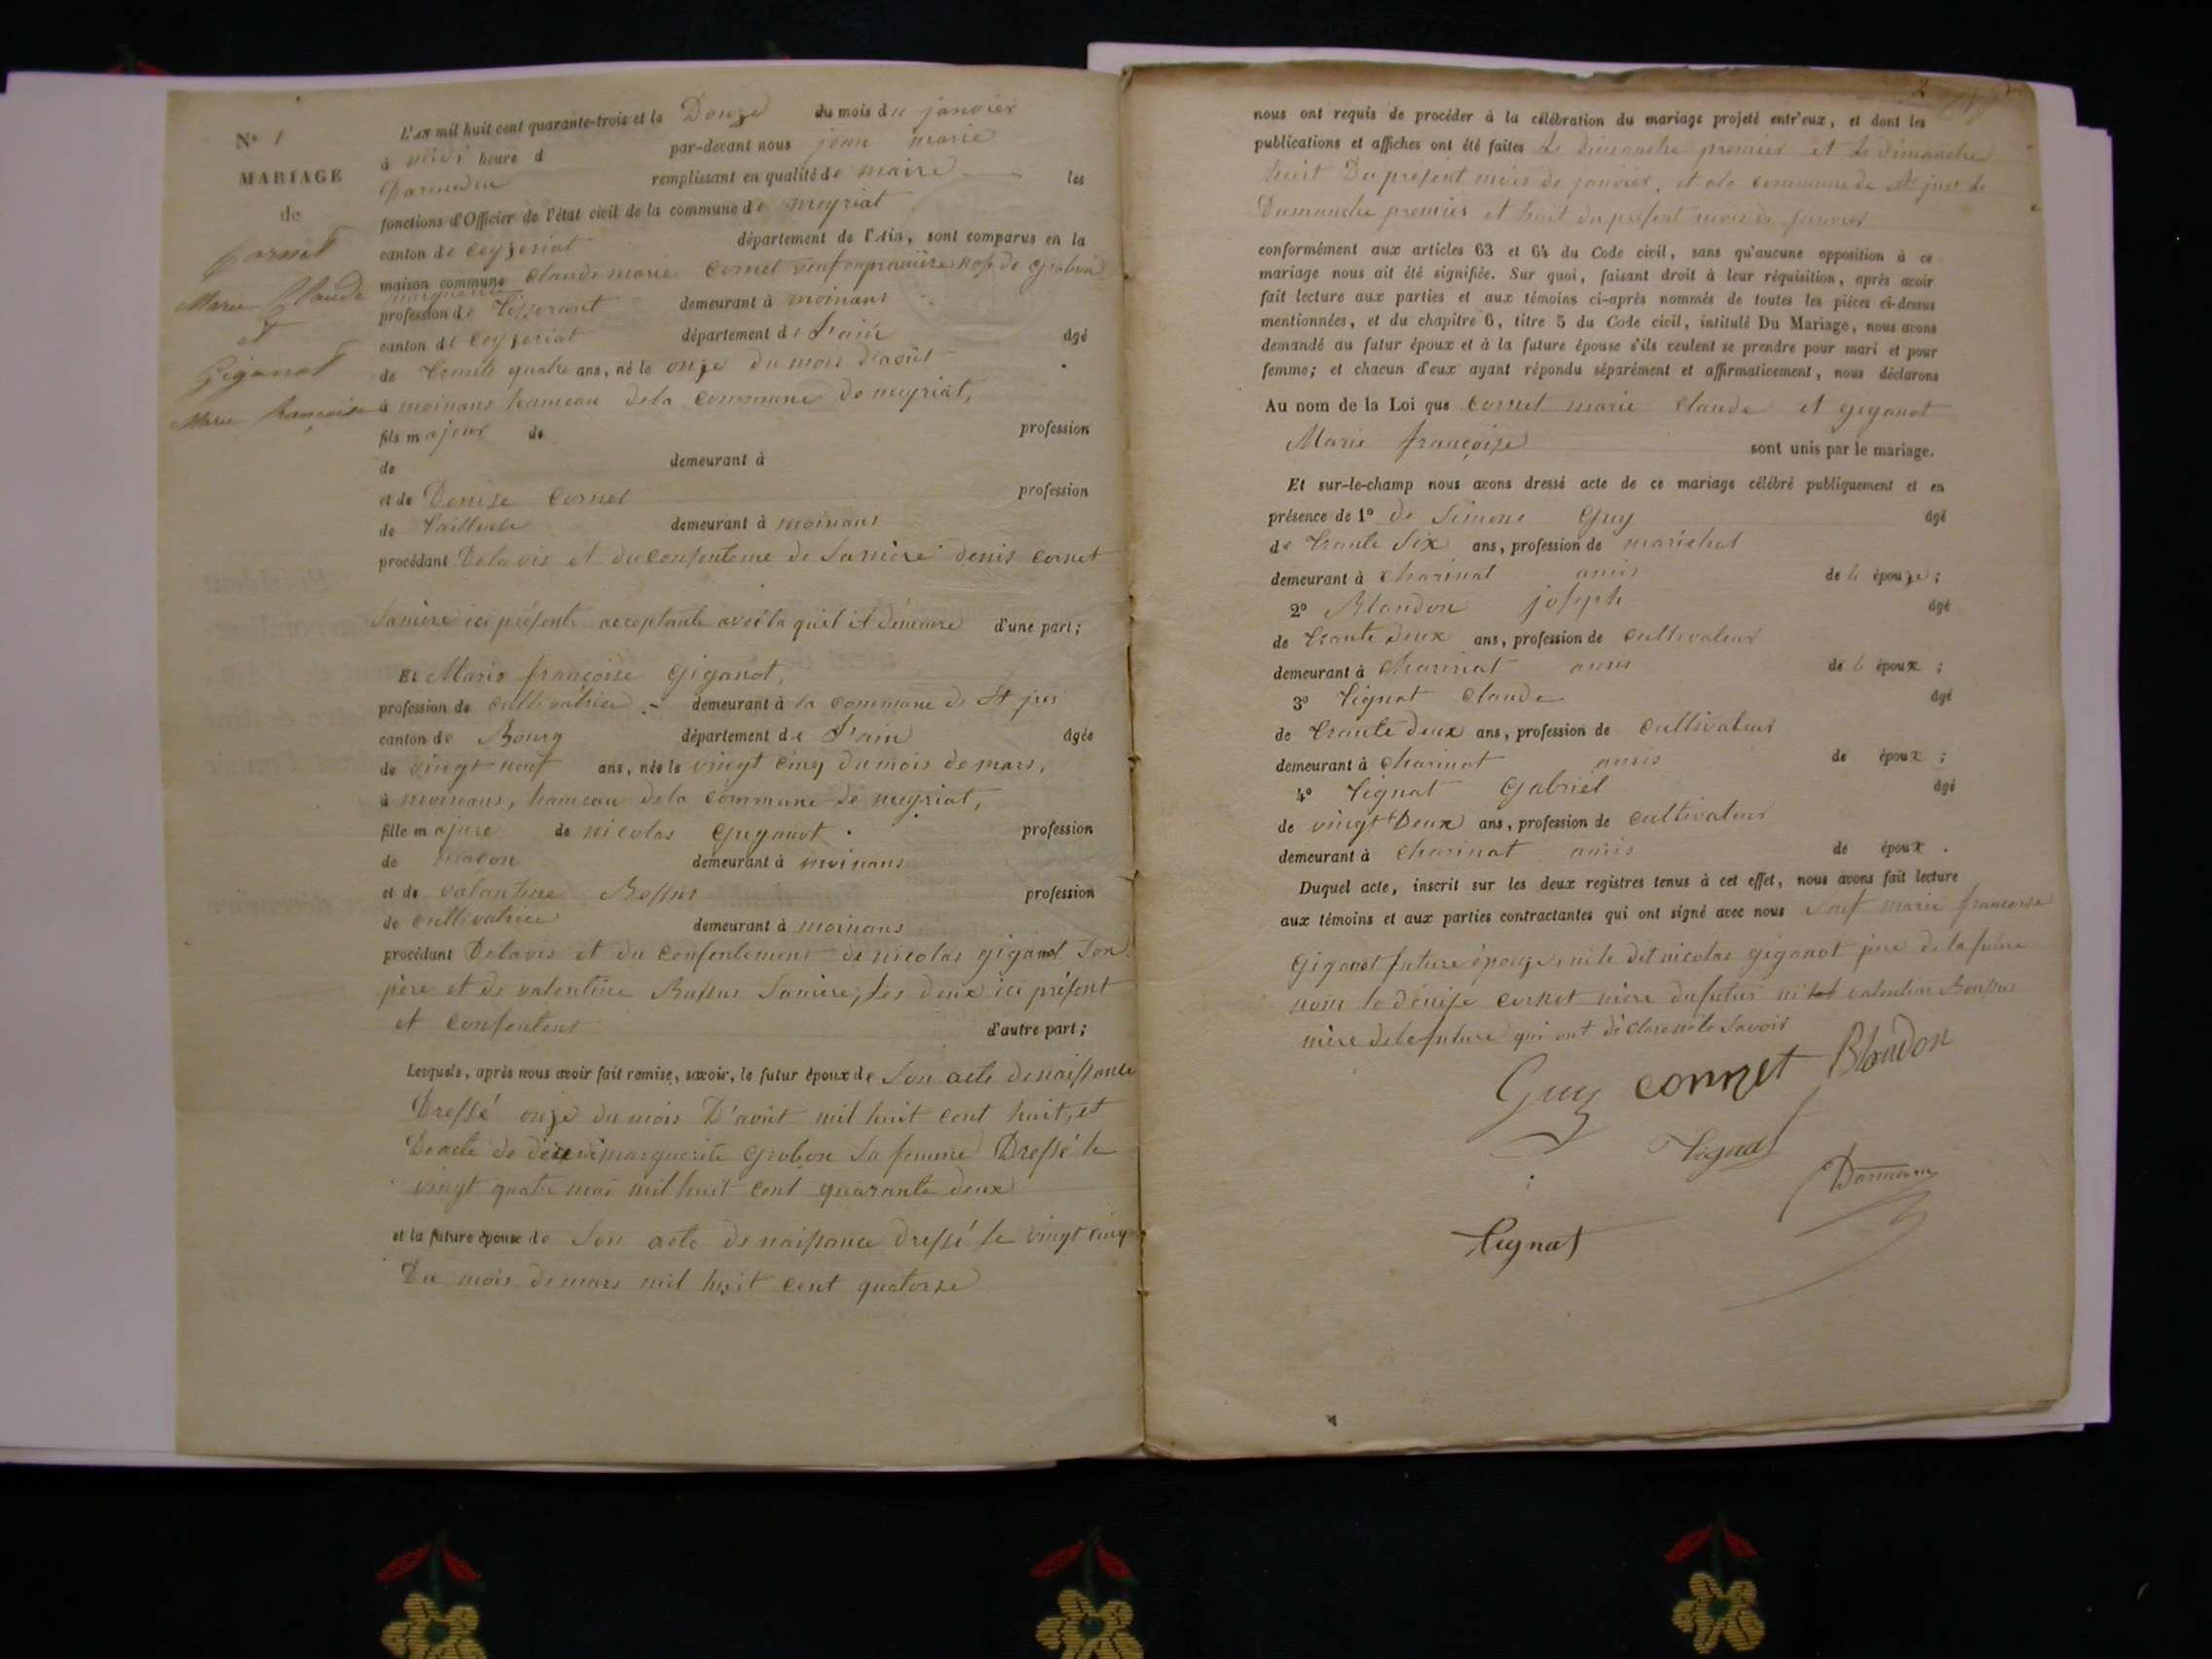 N° 1
MARIAGE
de
Cornet
Marie Claude
et
Giganot
Marie françoise
L'an mil huit cent quarante-trois et le Douze du mois de janvier
à midi heure d par-devant nous jean marie
remplissant en qualité de maire les
fonctions d'Officier de l'état civil de la commune de meyriat
canton de Ceyzeriat département de l'Ain, sont comparus en la
maison commune Claude marie Cornet veuf en première nose de grobon
marguerite
profession de tisserant demeurant à moinans
canton de Ceyzeriat département de l'ain âgé
de trente quatre ans, né le onze du mois d'août
à moinans hameau dela commune de meyriat,
fils majeur de profession
de demeurant à
et de Denise Cornet profession
de demeurant à moinans
procédant Delavis et du consenteme de samère denis cornet
samère ici présente acceptante avec la quel il demeure d'une part;
Et Marie françoise giganot,
profession de cultivatrice demeurant à la commune de St jus
canton de Bourg département de l'ain âgée
de vingt neuf ans, née le vingt cinq du mois de mars,
à moinans, hameau dela commune de meyriat,
fille majure de nicolas giganot profession
de maçon demeurant à moinans
et de valantine profession
de cultivatrice demeurant à moinans
procédant Delavis et du consentement de nicolas giganot son
père et de valentine samère, les deux ici présent
et consentent d'autre part;
Lesquels, après nous avoir fait remise, savoir, le futur époux de son acte denaissance
Dressé onze du mois D'août mil huit cent huit, et
De acte de décé de marguerite grobon sa femme Dressé le
vingt quatre mai mil huit cent quarante deux
et la future épouse de son acte de naissance dressé le vingt cinq
Du mois demars mil huit cent quatorze
nous ont requis de procéder à la célébration du mariage projeté entr'eux, et dont les
publications et affiches ont été faites Le dimanche premier et Le dimanche
huit Du présent mois de janvier, et ala commune de St just Le
Dumanche premier et huit du présent mois de janvier
conformément aux articles 63 et 64 du Code civil, sans qu'aucune opposition à ce
mariage nous ait été signifiée. Sur quoi, faisant droit à leur réquisition, après avoir
fait lecture aux parties et aux témoins ci-après nommés de toutes les pièces ci-dessus
mentionnées, et du chapitre 6, titre 5 du Code civil, intitulé Du Mariage, nous avons
demandé au futur époux et à la future épouse s'ils veulent se prendre pour mari et pour
femme; et chacun d'eux ayant répondu séparément et affirmativement, nous déclarons
Au nom de la Loi que Cornet marie claude et giganot
Marie françoise sont unis par le mariage.
Et sur-le-champ nous avons dressé acte de ce mariage célébré publiquement et en
présence de 1° de Simone Guy âgé
de trante six ans, profession de marichal
demeurant à charinat amis de l épouze;
2° Blandon joseph âgé
de trante deux ans, profession de cultivateur
demeurant à charinat amis de l époux;
3° Tignat Claude âgé
de trante deux ans, profession de cultivateur
demeurant à charinat amis de époux;
4° Tignat Gabriel âgé
de vingt Deux ans, profession de cultivateur
demeurant à charinat amis de époux.
Duquel acte, inscrit sur les deux registres tenus à cet effet, nous avons fait lecture
aux témoins et aux parties contractantes qui ont signé avec nous sauf marie francoise
giganot future épouze, ni le dit nicolas giganot père de la future
la denise cornet mère du futur ni valentine
mère dela future qui ont déclare ne le savoir
Guy cornet Blandon
Tignat
Tignat